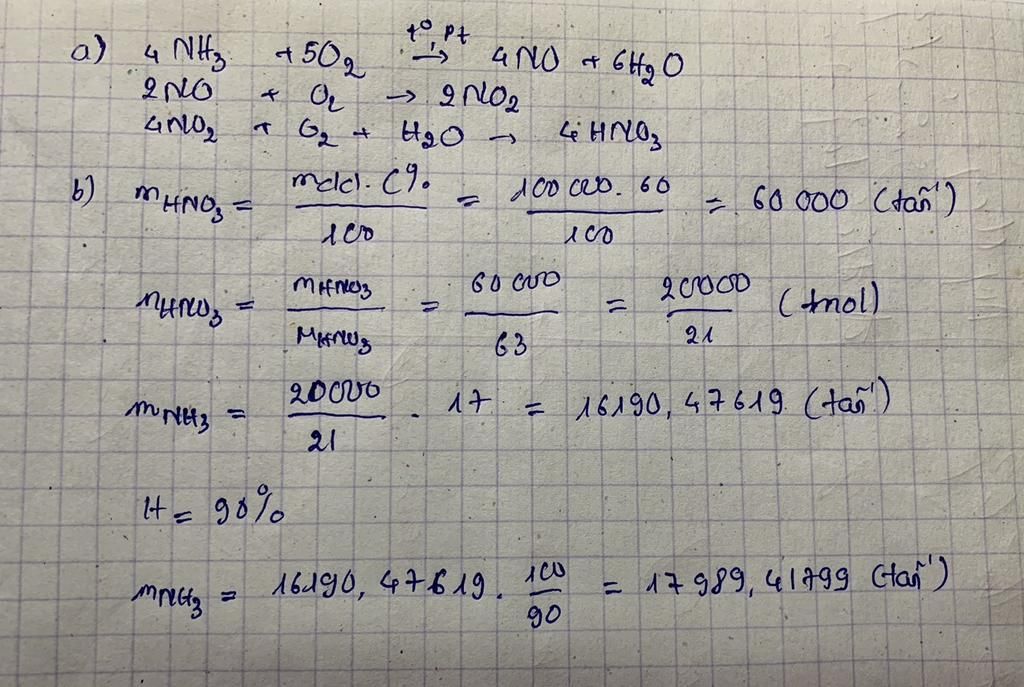 a) 4NH₃ + 5O₂ →(t°, Pt) 4NO + 6H₂O
2NO + O₂ → 2NO₂
4NO₂ + O₂ + H₂O → 4HNO₃
b) mHNO₃ = mdd. C% / 100 = 100 000. 60 / 100 = 60 000 (tấn)
nHNO₃ = mHNO₃ / MHNO₃ = 60 000 / 63 = 20000 / 21 (tmol)
mNH₃ = 20000 / 21 . 17 = 16190,47619 (tấn)
H = 90%
mNH₃ = 16190,47619. 100 / 90 = 17989,41799 (tấn)